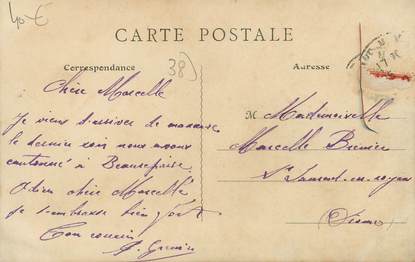 40 €
CARTE POSTALE
Correspondance
38)
Adresse
Chère Marcelle
Je viens d'arriver de manœuvre
le dernier soir nous avons
cantonné à Beaurepaire
Adieu chère Marcelle
je t'embrasse bien fort
Ton cousin
M. Mademoiselle
Marcelle
St Laurent-en-royans
(Drôme)